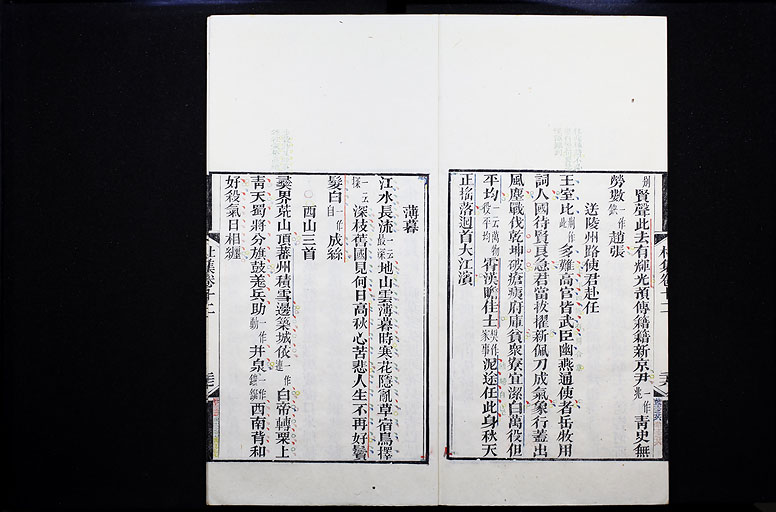 賢聲此去有輝光預傳籍籍新京尹一作兆青史無
勞數一作趙張
送陵州路使君赴任
王室比多難高官皆武臣幽燕通使者岳牧用
詞人國待賢良急君當拔擢新佩刀成氣象行蓋出
風塵戰伐乾坤破瘡痍府庫貧衆寮宜潔白萬役但
平均一云萬物役平均霄漢瞻佳士泥途任此身秋天
正搖落迴首大江濱
杜集卷十二
薄暮
江水長流地山雲薄暮時寒花隱亂草宿鳥擇
一云探深枝舊國見何日高秋心苦悲人生不再好鬢
髮白一作自成絲
西山三首
夷界荒山頂蕃州積雪邊築城依一作連白帝轉粟上
青天蜀將分旗鼓羌兵助一作動井泉西南背和
好殺氣日相纏
杜集卷十二